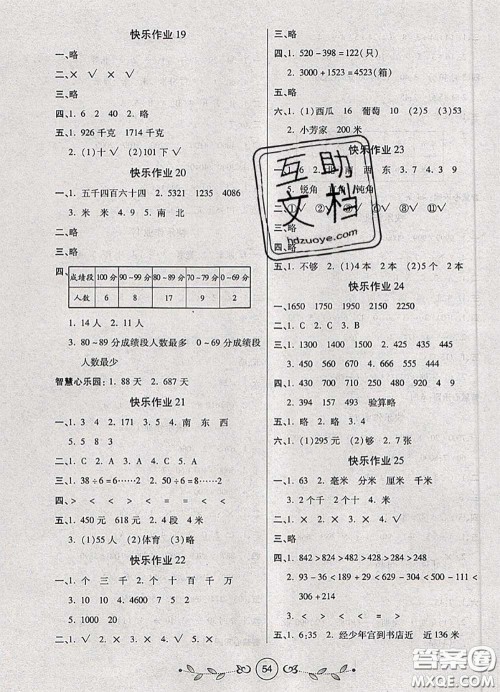 快乐作业 19
一、略
二、× √ × ×
三、略
四、1. 6 2. 40 2. 略
五、1. 926 千克 1714 千克
2. (1)十 √ (2)101 下 √
快乐作业 20
一、1. 五千四百六十四 2. 5321 1235 4086
3. 米 米 4. 9 5. 南 北
二、略
三、略
四、
成绩段 100 分 90～99 分 80～89 分 70～79 分 0～69 分
人数 6 8 17 9 2
1. 14 人 2. 11 人
3. 80～89 分成绩段人数最多 0～69 分成绩段
人数最少
智慧心乐园：1. 88 天 2. 687 天
快乐作业 21
一、1. 3 4 2. 171 3. 5 4. 南 东 西
5. 5 8 3
二、1. C 2. A 3. C 4. B
三、1. 38÷6=6……2 2. 50÷6=8……2
3. × √ × √ √
四、> < > < < < > < <
五、1. 450 元 618 元 2. 4 段 4 米
3. (1)55 人 (2)体育 (3)略
快乐作业 22
一、1. 个 三 千 2. 十 百 千 万
3. 1000 4. 3200 2300
5. 1000
二、1. √ 2. × 3. × 4. √ 5. √
三、略
四、1. 520－398＝122(只)
2. 3000＋1523＝4523(箱)
五、略
六、1. (1)西瓜 葡萄 10 (2)5 (3)53
2. 小芳家 200 米
快乐作业 23
西 东
锐角
三、略
四、略
五、1. 不够 2. (1)4 本 (2)5 本
快乐作业 24
一、1650 1750 1950 2150 2250
二、1. C 2. B 3. C
三、1. 1300 1500 9000 2. 425 445
3. 100 135 4. 1400 1500
四、2. 974 298 439 验算略
五、× √ ×
六、1. (1)295 元 (2)够 2. 7 张
快乐作业 25
一、1. 63 2. 毫米 分米 厘米 千米
3. 2 个千 2 个十 4. > > < =
二、1. × 2. √ 3. × 4. √
三、略
四、1. 842＞824＞482＞428＞284＞248
2. 93－86＜189＋29＜629－57＜930－304
＜451＋187＜582＋311
3. > < < < > >
五、1. 6:35 2. 经少年宫到书店近 近 136 米
互助文档
hdzuoye.com
54
答案圈
MXQE.COM